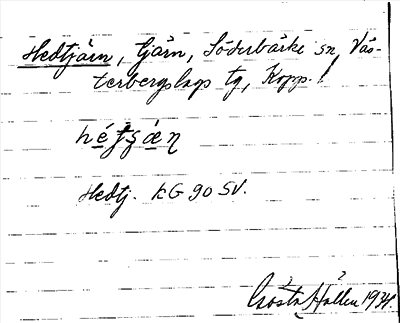 Hedtjärn, tjärn, Söderbärke sn, Väs-
terbergslags tg, Kopp. l
Hedtj. KG 90 SV.
Gösta Hallén 1934.